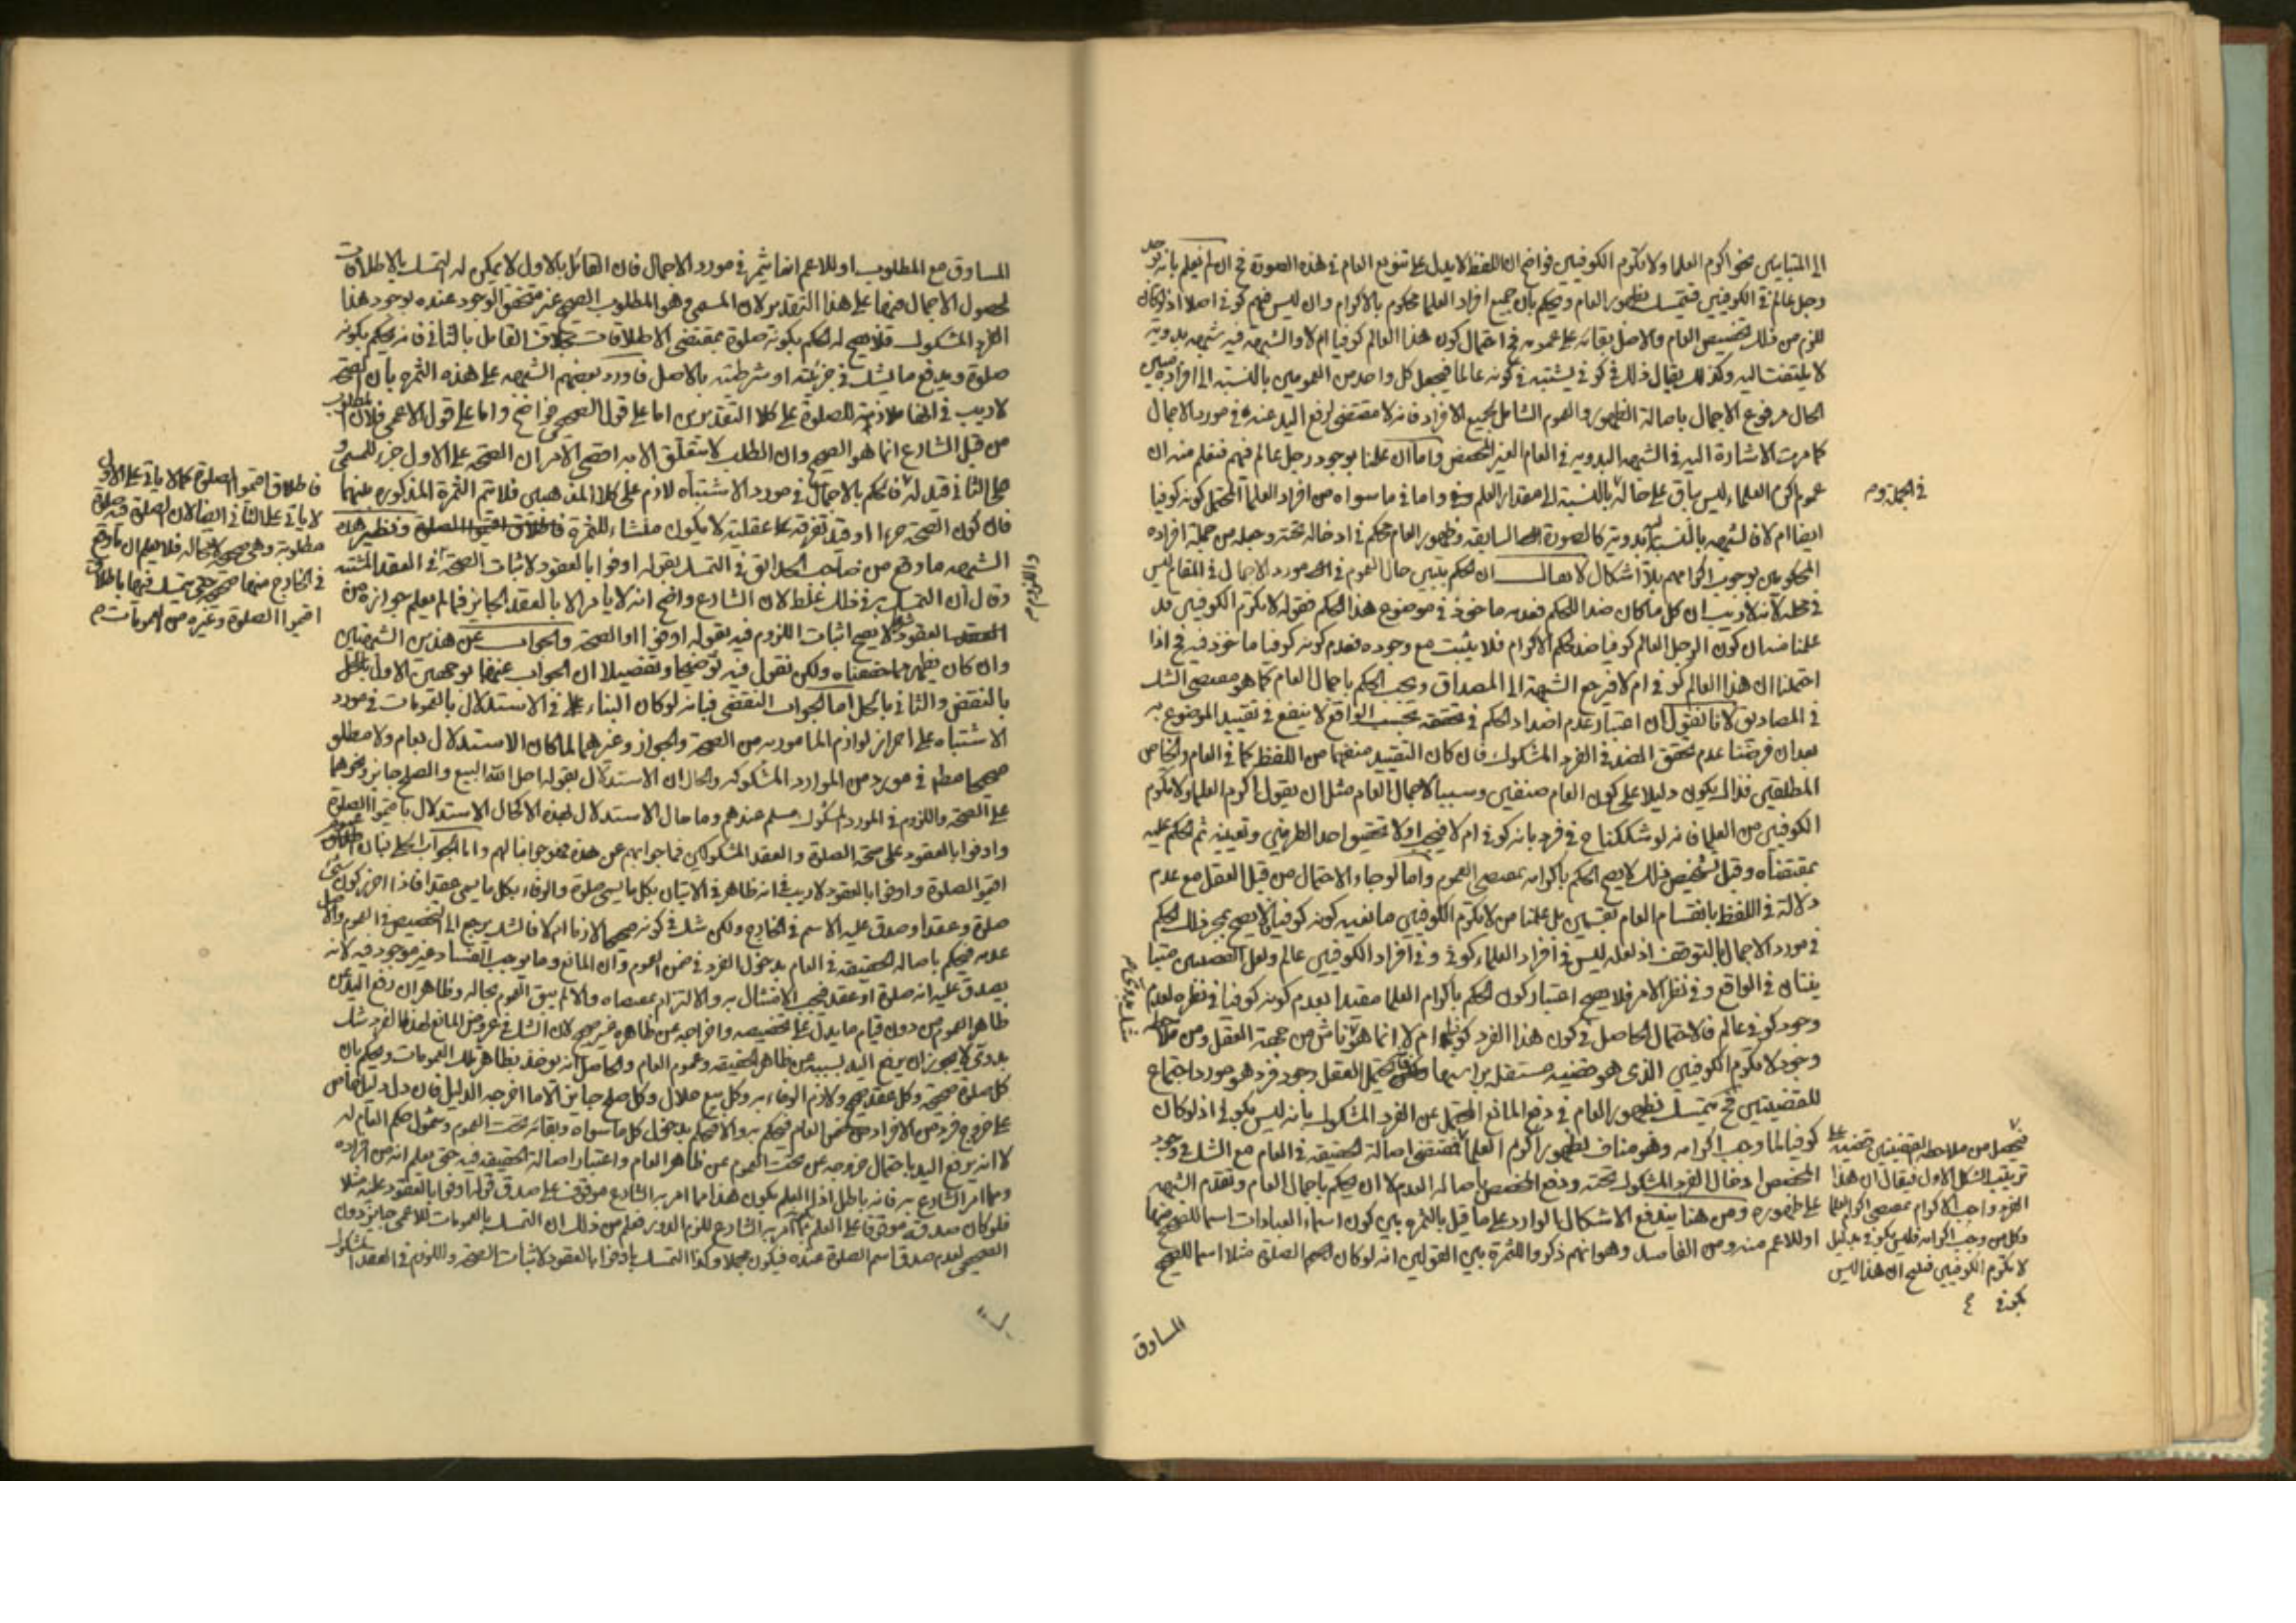 الى المتباينين نحو اكرم العلما ولا تكرم الكوفيين فواضح ان اللفظ لا يدل على تنويع العام فى هذه الصورة فح ان لم نعلم بانه يوجد
رجل عالم فى الكوفيين فنتمسك بظهور العام ونحكم بان جميع افراد العلما محكوم بالاكرام وان ليس فيهم كوفى اصلا اذ لو كان
للزم من ذلك تخصيص العام والاصل بقائه على عمومه فح احتمال كون هذا العالم كوفيا ام لا والشبهه فيه شبهه بدويه
لا يلتفت اليه وكذلك يقال ذلك فى كوفى يشتبه فى كونه عالما فيجعل كل واحد من العمومين بالنسبه الى افراده مبين
الحال مرفوع الاجمال باصالة الظهور والعموم الشامل لجميع الافراد فانه لا مقتضى لرفع اليد عنه فى مورد الاجمال
كما مرت الاشارة اليه فى الشبهه البدويه فى العام الغير المخصص واما ان علمنا بوجود رجل عالم فيهم فنعلم منه ان
عموم اكرم العلماء ليس بباق على حاله بالنسبة الى مقدار العلم واما فى ما سواه من افراد العلما المحتمل كونه كوفيا
فى الجملة وم
ايضا ام لا فالشبهه بالنسبه اليه بدويه كالصورة السابقه وظهور العام محكم فى ادخاله تحته وجعله من جملة افراده
المحكومين بوجوب اكرامهم بلا اشكال لا يقال ان الحكم بتبين حال العموم فى مورد الاجمال فى المقام ليس
فى محله لانه لا ريب ان كل ما كان ضدا للحكم فعدمه ماخوذ فى موضوع هذا الحكم فقوله لا تكرم الكوفيين قد
علمنا منه ان كون الرجل العالم كوفيا ضد لحكم الاكرام فلا يثبت مع وجوده فعدم كونه كوفيا ماخوذ فيه فح اذا
احتملنا ان هذا العالم كوفى ام لا فيرجع الشبهة الى المصداق ويجب الحكم باجمال العام كما هو مقتضى الشك
فى المصاديق لانا نقول ان اعتبار عدم اضداد الحكم فى تحققه بحسب الواقع لا ينفع فى تقييد الموضوع به
بعد ان فرضنا عدم تحقق الضد فى الفرد المشكوك فان كان التقييد منفهما من اللفظ كما فى العام والخاص
المطلقين فذاك يكون دليلا على كون العام صنفين وسببا لاجمال العام مثل ان يقول اكرم العلما ولا تكرم
الكوفيين من العلما فانه لو شككنا ح فى فرد بانه كوفى ام لا فيجب اولا تحقيق احد الطرفين وتعيينه ثم الحكم عليه
بمقتضاه وقبل تشخيص ذلك لا يصح الحكم باكرامه بمقتضى العموم واما لو جاء الاحتمال من قبل العقل مع عدم
دلالة فى اللفظ بانقسام العام بقسمين بل علمنا من لا تكرم الكوفيين مانعيه كونه كوفيا لا يصح بمجرد ذلك الحكم
فى مورد الاجمال بالتوقف اذ لعله ليس فى افراد العلماء كوفى وفى افراد الكوفيين عالم ولعل القضيتين متبا
ينتان فى الواقع وفى نظر الامر فلا يصح اعتبار كون الحكم باكرام العلما مقيدا بعدم كونه كوفيا فى نظره لعدم
وجود كوفى عالم فالاحتمال الحاصل فى كون هذا الفرد كوفيا ام لا انما هو ناش من جهة العقل ومن ملاحظه
وجود لا تكرم الكوفيين الذى هو قضيه مستقل براسها يحتمل العقل وجود فرد هو مورد اجتماع
للقضيتين فح يتمسك بظهور العام فى دفع المانع المحتمل عن الفرد المشكوك بانه ليس بكوفى اذ لو كان
كوفيا لما وجب اكرامه وهو مناف لظهور اكرم العلما فمقتضى اصالة الحقيقه فى العام مع الشك فى وجود
المخصص ادخال الفرد المشكوك تحته ودفع المخصص باصاله العدم لا ان يحكم باجمال العام وتقدم الشبهه
على ظهوره ومن هنا يندفع الاشكال الوارد على ما قيل بالثمره بين كون اسماء العبادات اسما للصحيح منها
او للاعم منه ومن الفاسد وهو انهم ذكروا الثمرة بين القولين انه لو كان اسم الصلوة مثلا اسما للصحيح
فيحصل من ملاحظه القضيتين قضيه على
ترتيب الشكل الاول فيقال ان هذا
الفرد واجب الاكرام بمقتضى اكرم العلما
وكل من وجب اكرامه فليس بكوفى بدليل
لا تكرم الكوفيين فينتج ان هذا ليس
بكوفى
المساوق
المساوق مع المطلوب او للاعم انما يثمر فى مورد الاجمال فان القائل بالاول لا يمكن له التمسك بالاطلاقات
لحصول الاجمال فيها على هذا التقدير لان المسمى وهو المطلوب الصحيح غير متحقق الوجود عنده بوجود هذا
الفرد المشكوك فلا يصح له الحكم بكونه صلوة بمقتضى الاطلاقات بخلاف القائل بالثانى فانه يحكم بكونه
صلوة ويدفع ما يشك فى جزئيته او شرطيته بالاصل فاورد بعضهم الشبهه على هذه الثمره بان الصحة
لا ريب فى انها ملازمة للصلوة على كلا التقديرين اما على قول الصحيحى فواضح واما على قول الاعمى فلان المطلوب
من قبل الشارع انما هو الصحيح وان الطلب لا يتعلق الا به اقصى الامر ان الصحة على الاول جزء للمسمى و
على الثانى قيد له فالحكم بالاجمال فى مورد الاشتباه لازم على كلا المذهبين فلا تتم الثمرة المذكوره بينهما
فان كون الصحة جزءا او قيدا تفرقه عقلية لا يكون منشاء للثمرة ونظير هذه
فاطلاق اقيموا الصلوة كما لا ياتى على الاول
لا ياتى على الثانى ايضا لان الصلوة قد صلوة
مطلوبة وهى صحيح لا محاله فلا يعلم ان ما وقع
فى الخارج منها صحيح حتى يتمسك فيها باطلاق
اقيموا الصلوة وغيره من العمومات م
الشبهه ما وقع من صاحب الحدائق فى التمسك بقوله اوفوا بالعقود لاثبات الصحة فى العقد المشتبه
واللزوم م
وقال ان التمسك به فى ذلك غلط لان الشارع واضح انه لا يامر الا بالعقد الجائز فما لم يعلم جوازه من
العقود لا يصح اثبات اللزوم فيه بقوله اوفوا او الصحة والجواب عن هذين الشبهتين
وان كان يظهر مما حققناه ولكن نقول فيه توضيحا وتفصيلا ان الجواب عنهما بوجهين الاول
بالنقض والثانى بالحل اما الجواب النقضى فبانه لو كان البناء فى الاستدلال بالعمومات فى مورد
الاشتباه على احراز لوازم المامور به من الصحة والجواز وغيرهما لما كان الاستدلال بعام ولا مطلق
صحيحا مط فى مورد من الموارد المشكوكه والحال ان الاستدلال بقوله احل الله البيع والصلح جائز ونحوهما
على الصحة واللزوم فى المورد المشكوك مسلم عندهم وما حال الاستدلال لهذه الا كحال الاستدلال باقيموا الصلوة
واوفوا بالعقود على صحة الصلوة والعقد المشكوكين فما جوابهم عن هذه فهو جوابنا لهم واما الجواب الحلى فبان
اقيموا الصلوة واوفوا بالعقود لا ريب فى انه ظاهر فى الاتيان بكل ما يسمى صلوة والوفاء بكل ما يسمى عقدا فاذا احرز كون شئ
صلوة وعقدا وصدق عليه الاسم فى الخارج ولكن شك فى كونه صحيحا لازما ام لا فالشك يرجع الى التخصيص فى العموم والاصل
عدمه فيحكم باصاله الحقيقه فى العام بدخول الفرد فى ضمن العموم وان المانع وما يوجب الفساد غير موجود فيه لانه
يصدق عليه انه صلوة او عقد فيجب الامتثال به والالتزام بمقتضاه والا لم يبق العموم بحاله وظاهر ان رفع اليد عن
ظاهر العموم من دون قيام ما يدل على تخصيصه واخراجه عن ظاهره غير صحيح لان الشك فى عروض المانع لهذا الفرد شك
بدوى لا يجوز ان يرفع اليد بسببه عن ظاهر الحقيقه وعموم العام والحاصل انه يوخذ بظاهر تلك العمومات ويحكم بان
كل صلوة صحيحة وكل عقد صحيح ولازم الوفاء به وكل بيع حلال وكل صلح جايز الا ما اخرجه الدليل فان دل دليل خاص
على خروج فرد من الافراد من العام فيحكم به والا فيحكم بدخول كل ما سواه وبقائه تحت العموم وشمول حكم العام له
لا انه يرفع اليد باحتمال خروجه عن تحت العموم عن ظاهر العام واعتبار اصالة الحقيقه فيه حتى يعلم انه من افراده
ومما امر الشارع به فانه باطل اذ العلم بكون هذا مما امر به الشارع موقوف على صدق قوله اوفوا بالعقود عليه مثلا
فلو كان صدقه موقوفا على العلم بما امر به الشارع للزم الدور فعلم من ذلك ان التمسك بالعمومات للاعمى جايز دون
الصحيحى لعدم صدق اسم الصلوة عنده فيكون مجملا وكذا التمسك باوفوا بالعقود لاثبات الصحة واللزوم فى العقد المشكوك